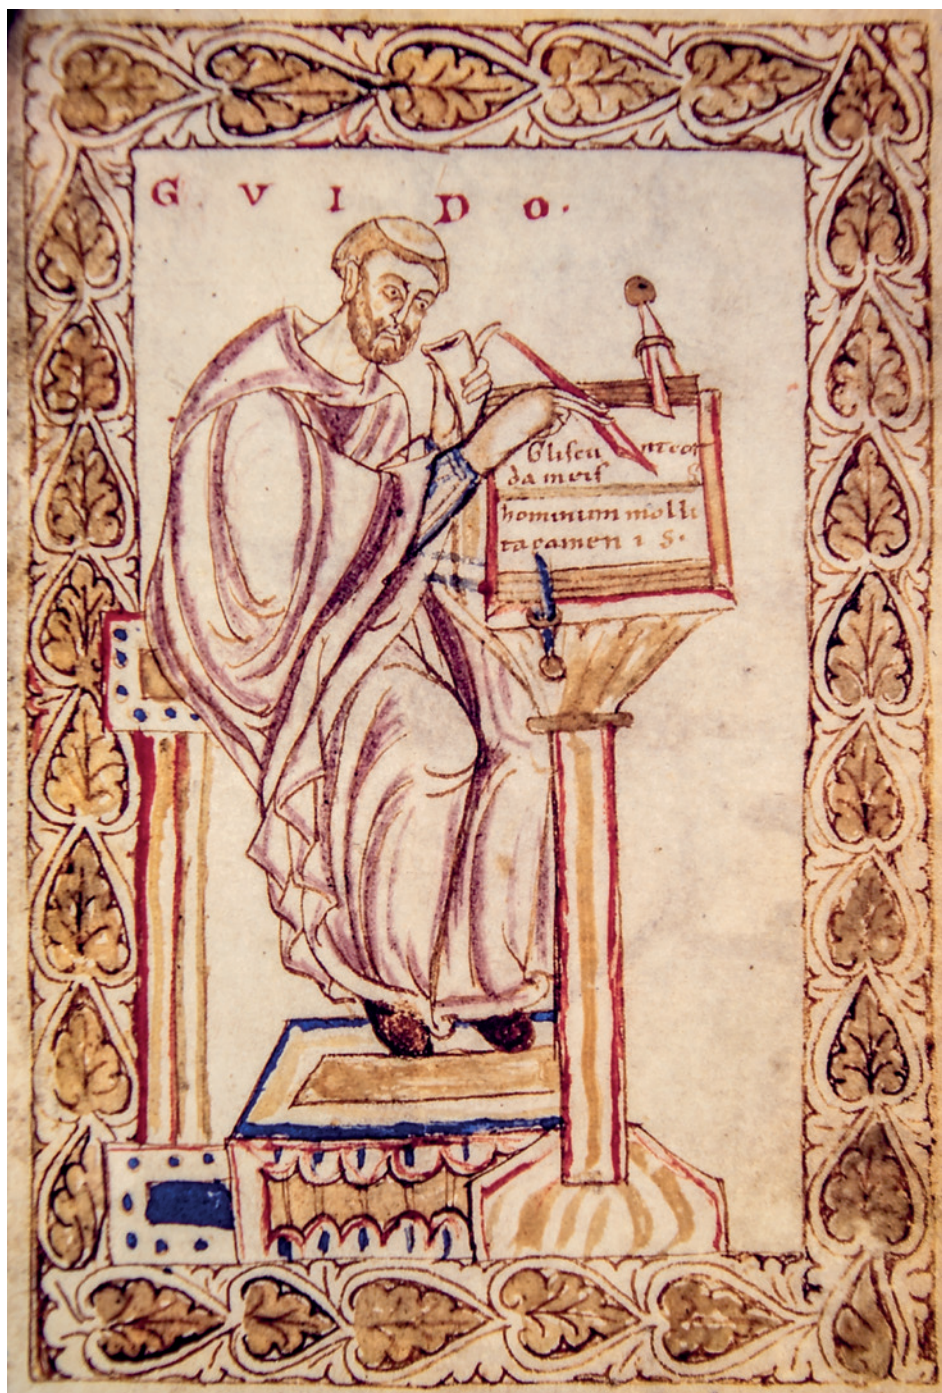 GVIDO.
Gliscu ntcor
da meis
hominum molli
ta camen i s.